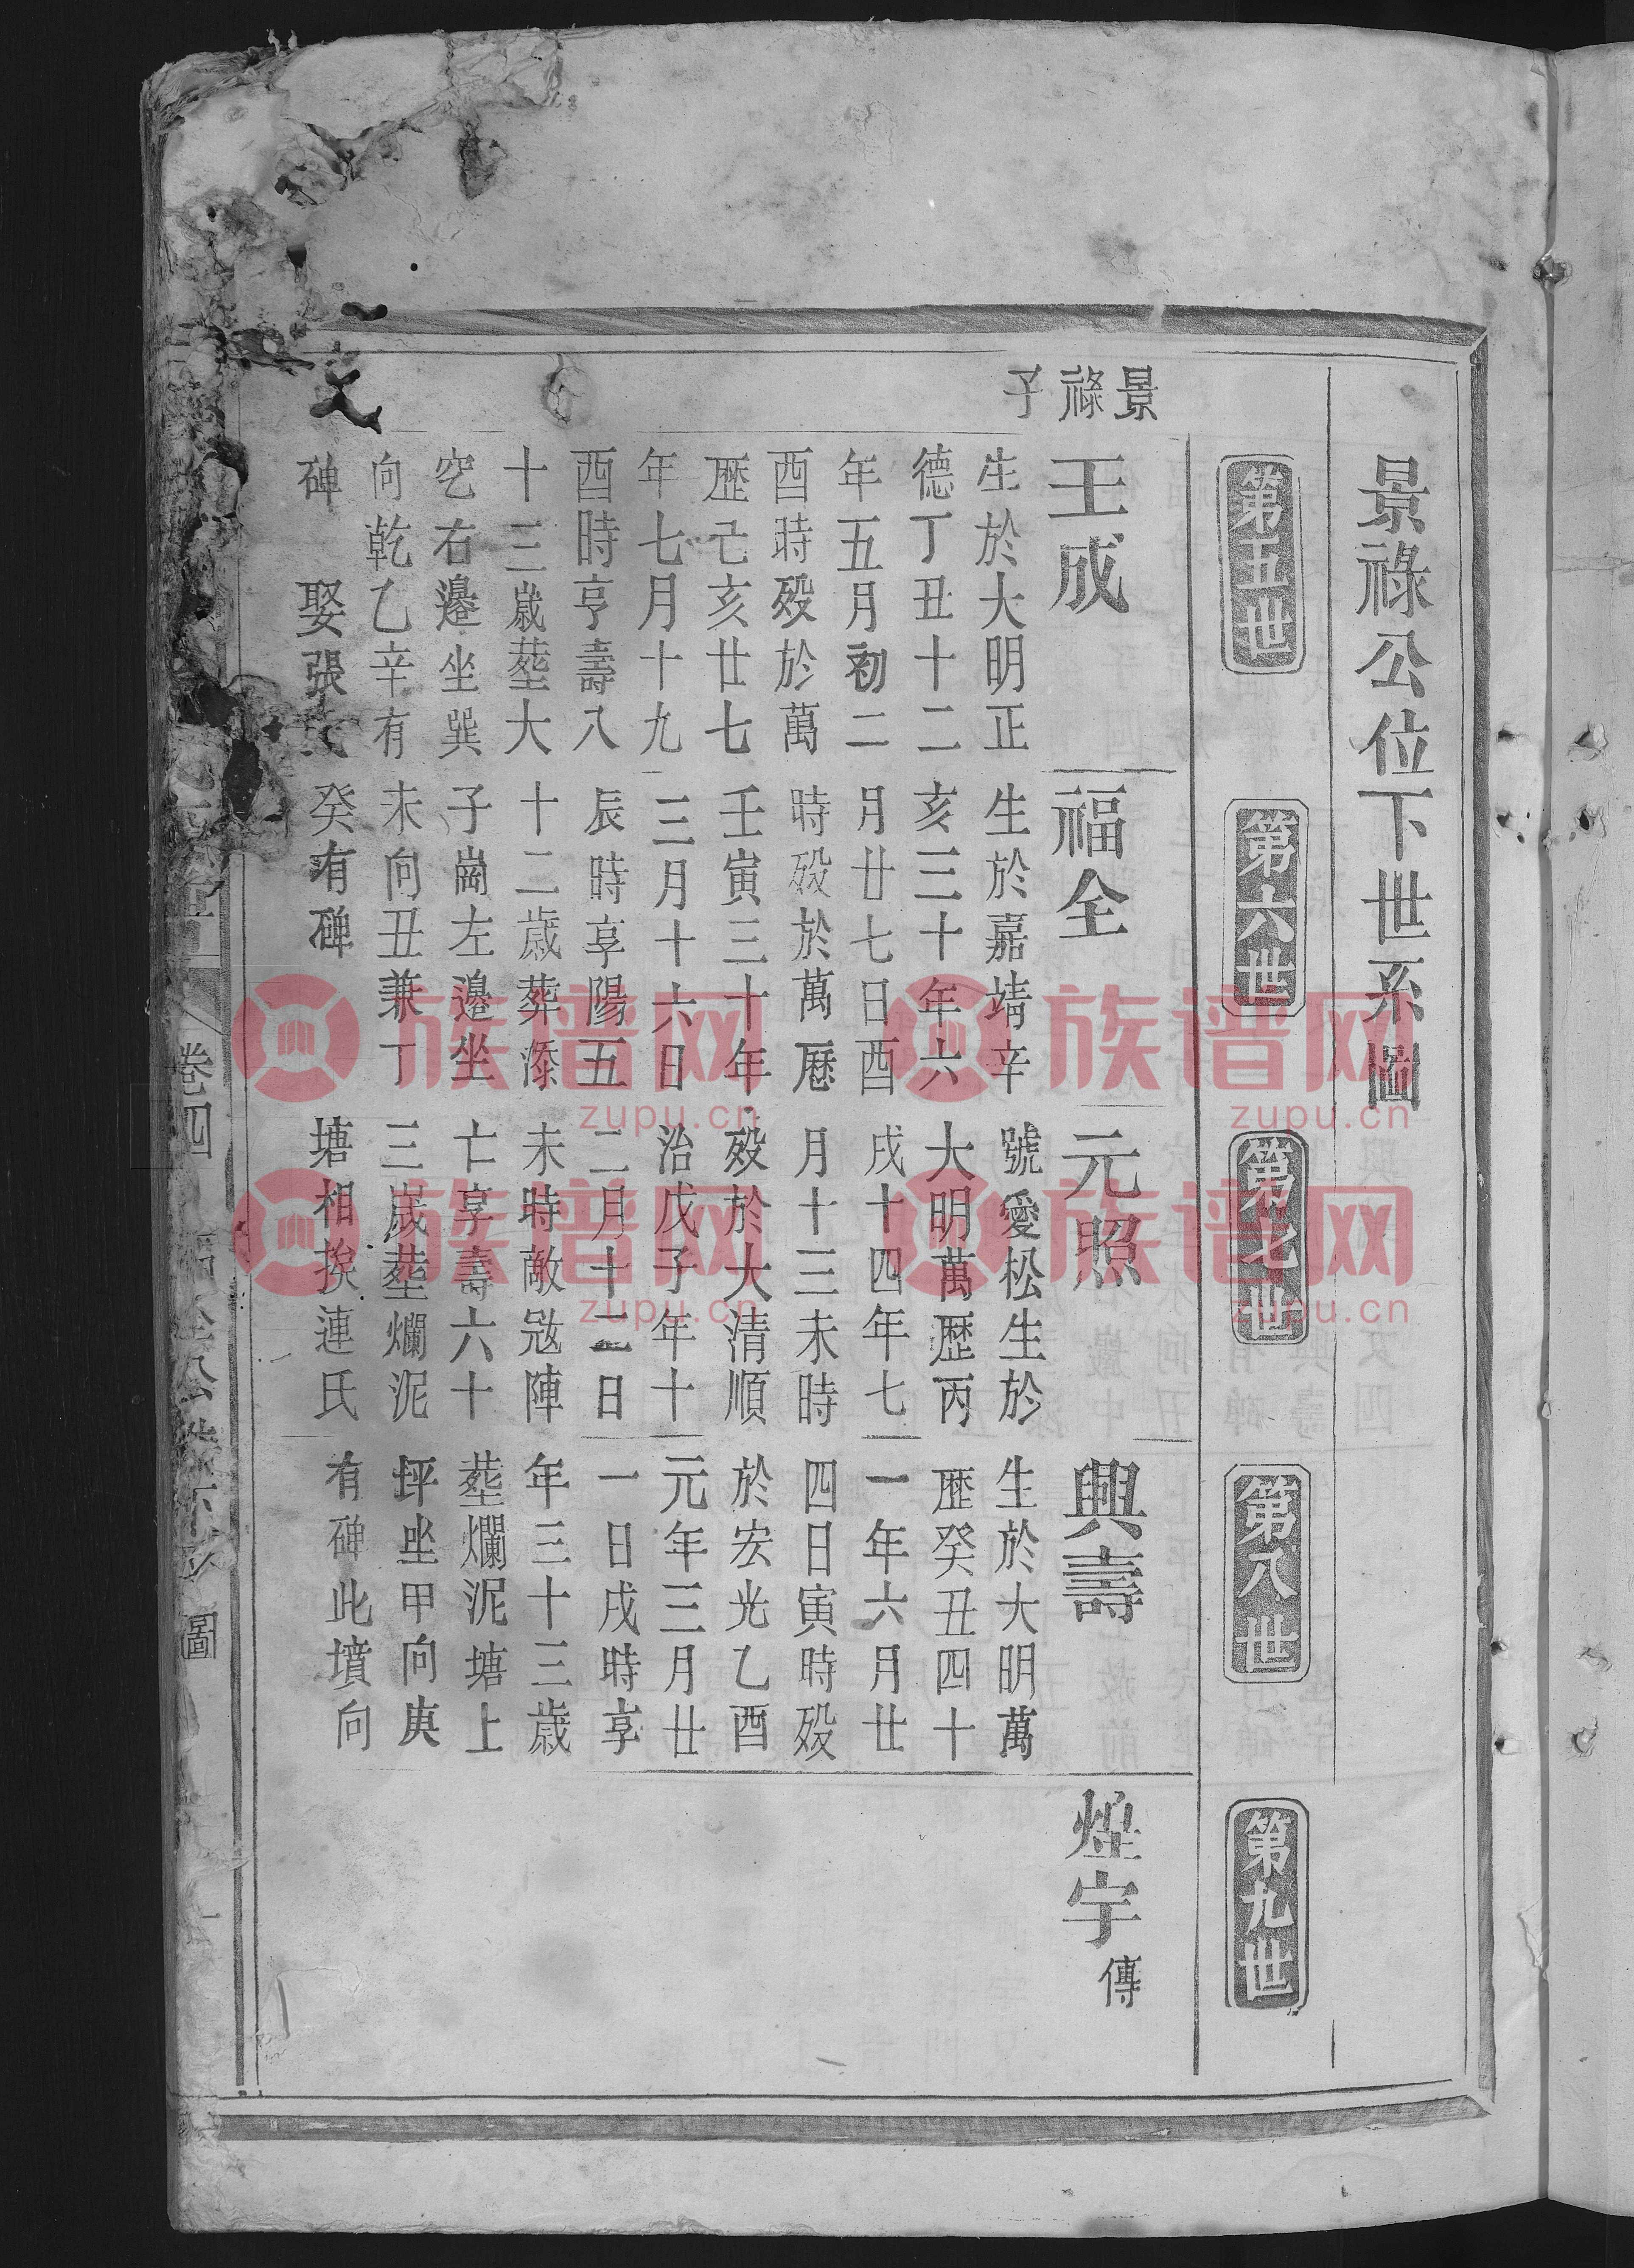 景祿公位下世系圖
第五世
第六世
第七世
第八世
第九世
景祿子
王成
生於大明正
德丁丑十二
年五月初二
酉時殁於萬
歷己亥廿七
年七月十九
酉時亨壽八
十三歲塟大
穵右邉坐巽
向乾乙辛有
碑 娶張氏
福全
生於嘉靖辛
亥三十年六
月廿七日酉
時殁於萬歷
壬寅三十年
三月十六日
辰時享陽五
十二歲葬漆
子崗左邉坐
未向丑兼丁
癸有碑
元照
號愛松生於
大明萬歷丙
戌十四年七
月十三未時
殁於大清順
治戊子年十
二月十二日
未時敵冦陣
亡享壽六十
三歲塟爛泥
塘相挨連氏
興壽
生於大明萬
歷癸丑四十
一年六月廿
四日寅時殁
於宏光乙酉
元年三月廿
一日戌時享
年三十三歲
塟爛泥塘上
坪坐甲向庚
有碑此墳向
煌宇傳
卷四
圖
一
族谱网
zupu.cn
族谱网
zupu.cn
族谱网
zupu.cn
族谱网
zupu.cn